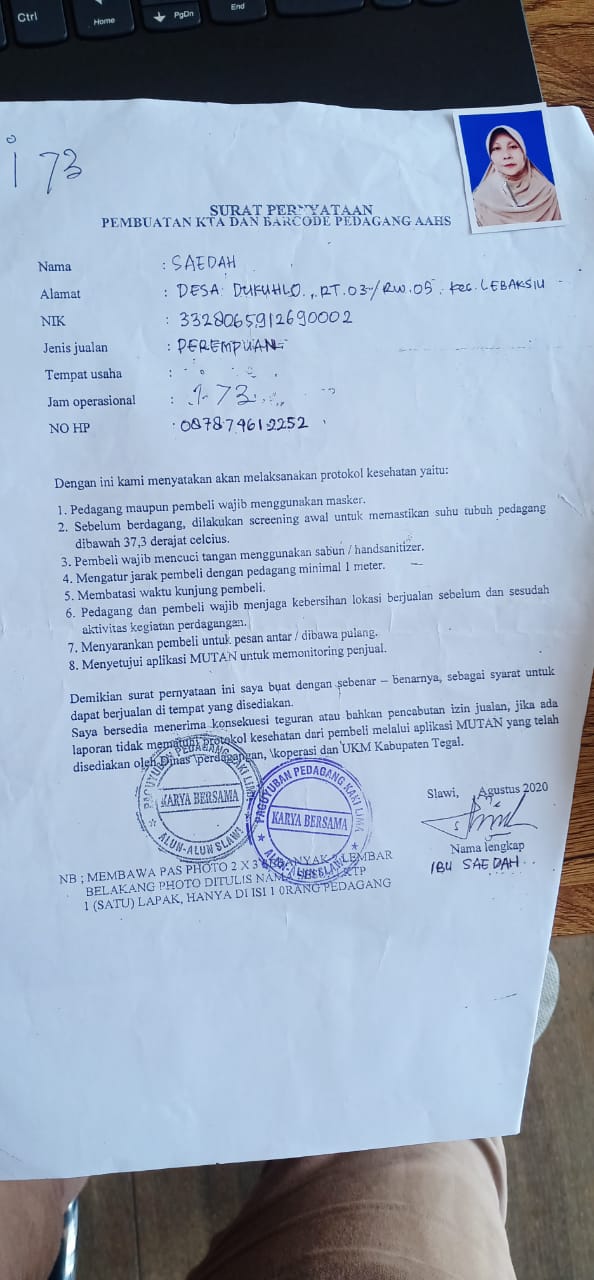 Ctrl
Home
PgDn
End
i 73
SURAT PERNYATAAN
PEMBUATAN KTA DAN BARCODE PEDAGANG AAHS
Nama : SAEDAH
Alamat : DESA DUKUHLO, RT.03/RW.05. Kec. LEBAKSIU
NIK : 3328065912690002
Jenis jualan : PEREMPUAN
Tempat usaha :
Jam operasional : 1-73
NO HP : 087874612252
Dengan ini kami menyatakan akan melaksanakan protokol kesehatan yaitu:
1. Pedagang maupun pembeli wajib menggunakan masker.
2. Sebelum berdagang, dilakukan screening awal untuk memastikan suhu tubuh pedagang
dibawah 37,3 derajat celcius.
3. Pembeli wajib mencuci tangan menggunakan sabun / handsanitizer.
4. Mengatur jarak pembeli dengan pedagang minimal 1 meter.
5. Membatasi waktu kunjung pembeli.
6. Pedagang dan pembeli wajib menjaga kebersihan lokasi berjualan sebelum dan sesudah
aktivitas kegiatan perdagangan.
7. Menyarankan pembeli untuk pesan antar / dibawa pulang.
8. Menyetujui aplikasi MUTAN untuk memonitoring penjual.
Demikian surat pernyataan ini saya buat dengan sebenar – benarnya, sebagai syarat untuk
dapat berjualan di tempat yang disediakan.
Saya bersedia menerima konsekuesi teguran atau bahkan pencabutan izin jualan, jika ada
laporan tidak mematuhi protokol kesehatan dari pembeli melalui aplikasi MUTAN yang telah
disediakan oleh Dinas \perdagangan, \koperasi dan UKM Kabupaten Tegal.
Slawi, Agustus 2020
PAGUYUBAN PEDAGANG KAKI LIMA
KARYA BERSAMA
ALUN-ALUN SLAWI
PAGUYUBAN PEDAGANG KAKI LIMA
KARYA BERSAMA
ALUN-ALUN SLAWI
Nama lengkap
IBU SAEDAH
NB ; MEMBAWA PAS PHOTO 2 X 3 LEMBAR
BELAKANG PHOTO DITULIS NAMA KTP
1 (SATU) LAPAK, HANYA DI ISI 1 0RANG PEDAGANG